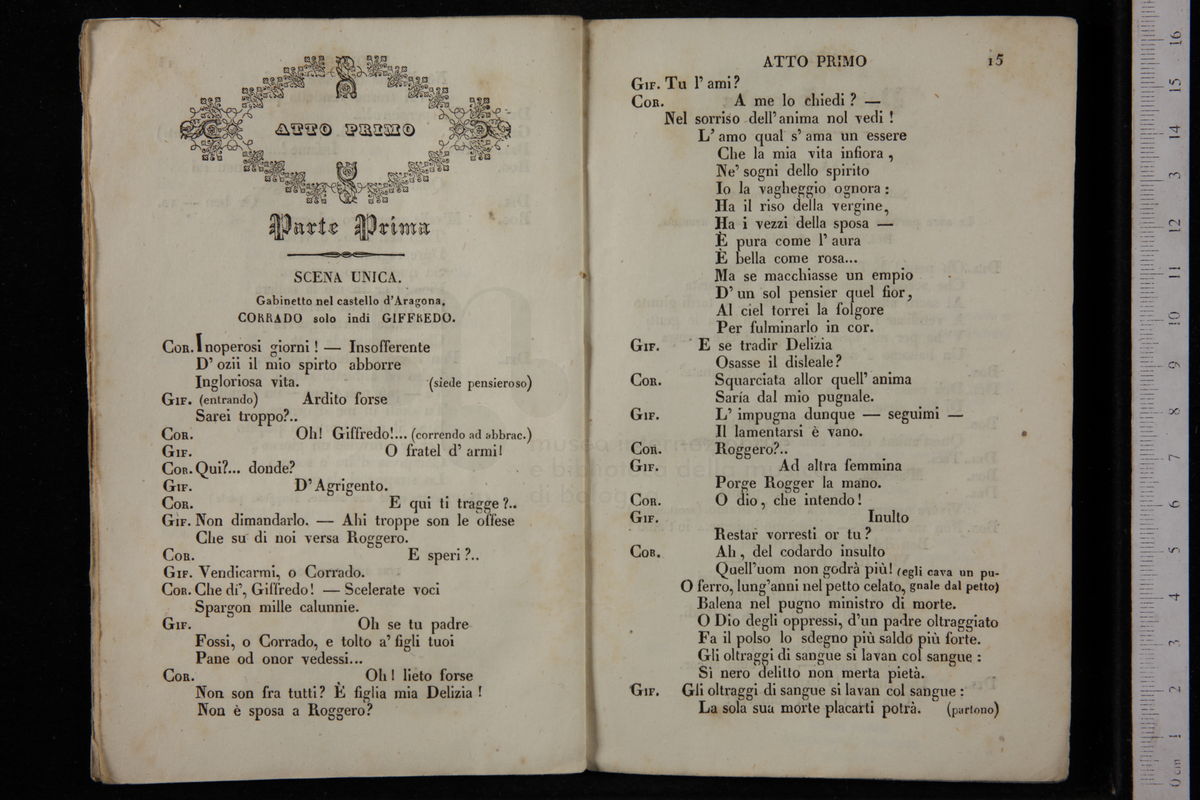 ATTO PRIMO
Parte Prima
SCENA UNICA.
Gabinetto nel castello d'Aragona.
CORRADO solo indi GIFFREDO.
COR. Inoperosi giorni! — Insofferente
D' ozii il mio spirto abborre
Ingloriosa vita. (siede pensieroso)
GIF. (entrando) Ardito forse
Sarei troppo?..
COR. Oh! Giffredo!... (correndo ad abbrac.)
GIF. O fratel d' armi!
COR. Qui?... donde?
GIF. D'Agrigento.
COR. E qui ti tragge?..
GIF. Non dimandarlo. — Ahi troppe son le offese
Che su di noi versa Roggero.
COR. E speri?..
GIF. Vendicarmi, o Corrado.
COR. Che di', Giffredo! — Scelerate voci
Spargon mille calunnie.
GIF. Oh se tu padre
Fossi, o Corrado, e tolto a' figli tuoi
Pane od onor vedessi...
COR. Oh! lieto forse
Non son fra tutti? È figlia mia Delizia!
Non è sposa a Roggero?
ATTO PRIMO 15
GIF. Tu l' ami?
COR. A me lo chiedi? —
Nel sorriso dell'anima nol vedi!
L' amo qual s' ama un essere
Che la mia vita infiora,
Ne' sogni dello spirito
Io la vagheggio ognora:
Ha il riso della vergine,
Ha i vezzi della sposa —
È pura come l' aura
È bella come rosa...
Ma se macchiasse un empio
D' un sol pensier quel fior,
Al ciel torrei la folgore
Per fulminarlo in cor.
GIF. E se tradir Delizia
Osasse il disleale?
COR. Squarciata allor quell' anima
Saría dal mio pugnale.
GIF. L' impugna dunque — seguimi —
Il lamentarsi è vano.
COR. Roggero?..
GIF. Ad altra femmina
Porge Rogger la mano.
COR. O dio, che intendo!
GIF. Inulto
Restar vorresti or tu?
COR. Ah, del codardo insulto
Quell'uom non godrà più! (egli cava un pu-
O ferro, lung'anni nel petto celato, gnale dal petto)
Balena nel pugno ministro di morte.
O Dio degli oppressi, d'un padre oltraggiato
Fa il polso lo sdegno più saldo più forte.
Gli oltraggi di sangue si lavan col sangue:
Sì nero delitto non merta pietà.
GIF. Gli oltraggi di sangue si lavan col sangue:
La sola sua morte placarti potrà. (partono)